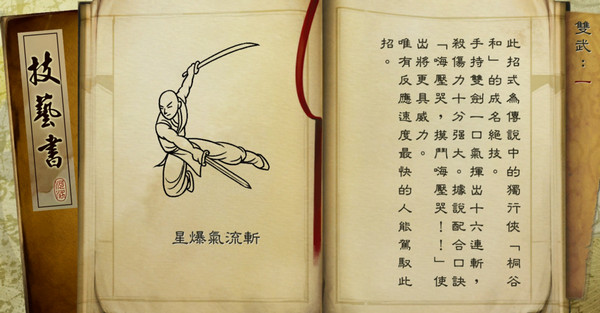 技藝書
星爆氣流斬
雙武：一
此招式為傳說中的獨行俠「桐谷
和」的成名絕技。
手持雙劍一口氣揮出十六連斬，
殺傷力十分強大。據說配合口訣
「嗨壓哭，摸鬥嗨壓哭！！」使
出將更具威力。
唯有反應速度最快的人能駕馭此
招。